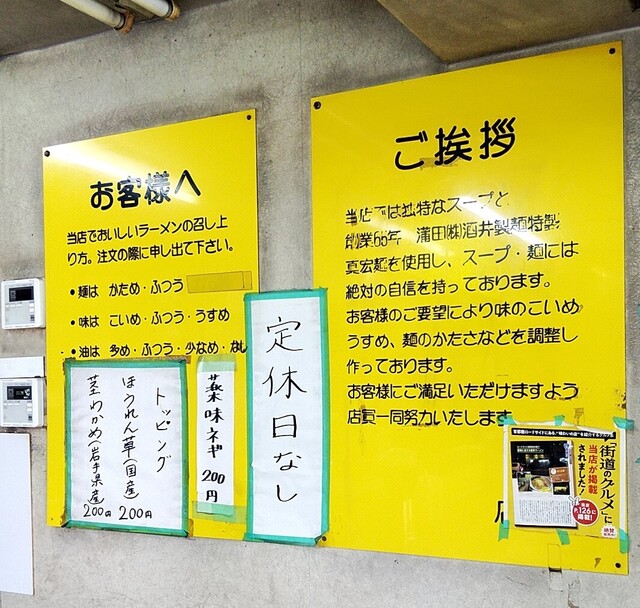 お客様へ
当店でおいしいラーメンの召し上
り方。注文の際に申し出て下さい。
•麺は かため・ふつう
•味は こいめ・ふつう・うすめ
•油は 多め・ふつう・少なめ・なし
トッピング
ほうれん草(国産)200円
芝わかめ(岩手県産)200円
薬味ネギ 200円
定休日なし
ご挨拶
当店では独特なスープと、
創業65年 蒲田㈱酒井製麺特製
真宏麺を使用し、スープ・麺には
絶対の自信を持っております。
お客様のご要望により味のこいめ
うすめ、麺のかたさなどを調整し
作っております。
お客様にご満足いただけますよう
店員一同努力いたします
「街道のグルメ」に
当店が掲載
されました!
P.126に
掲載!